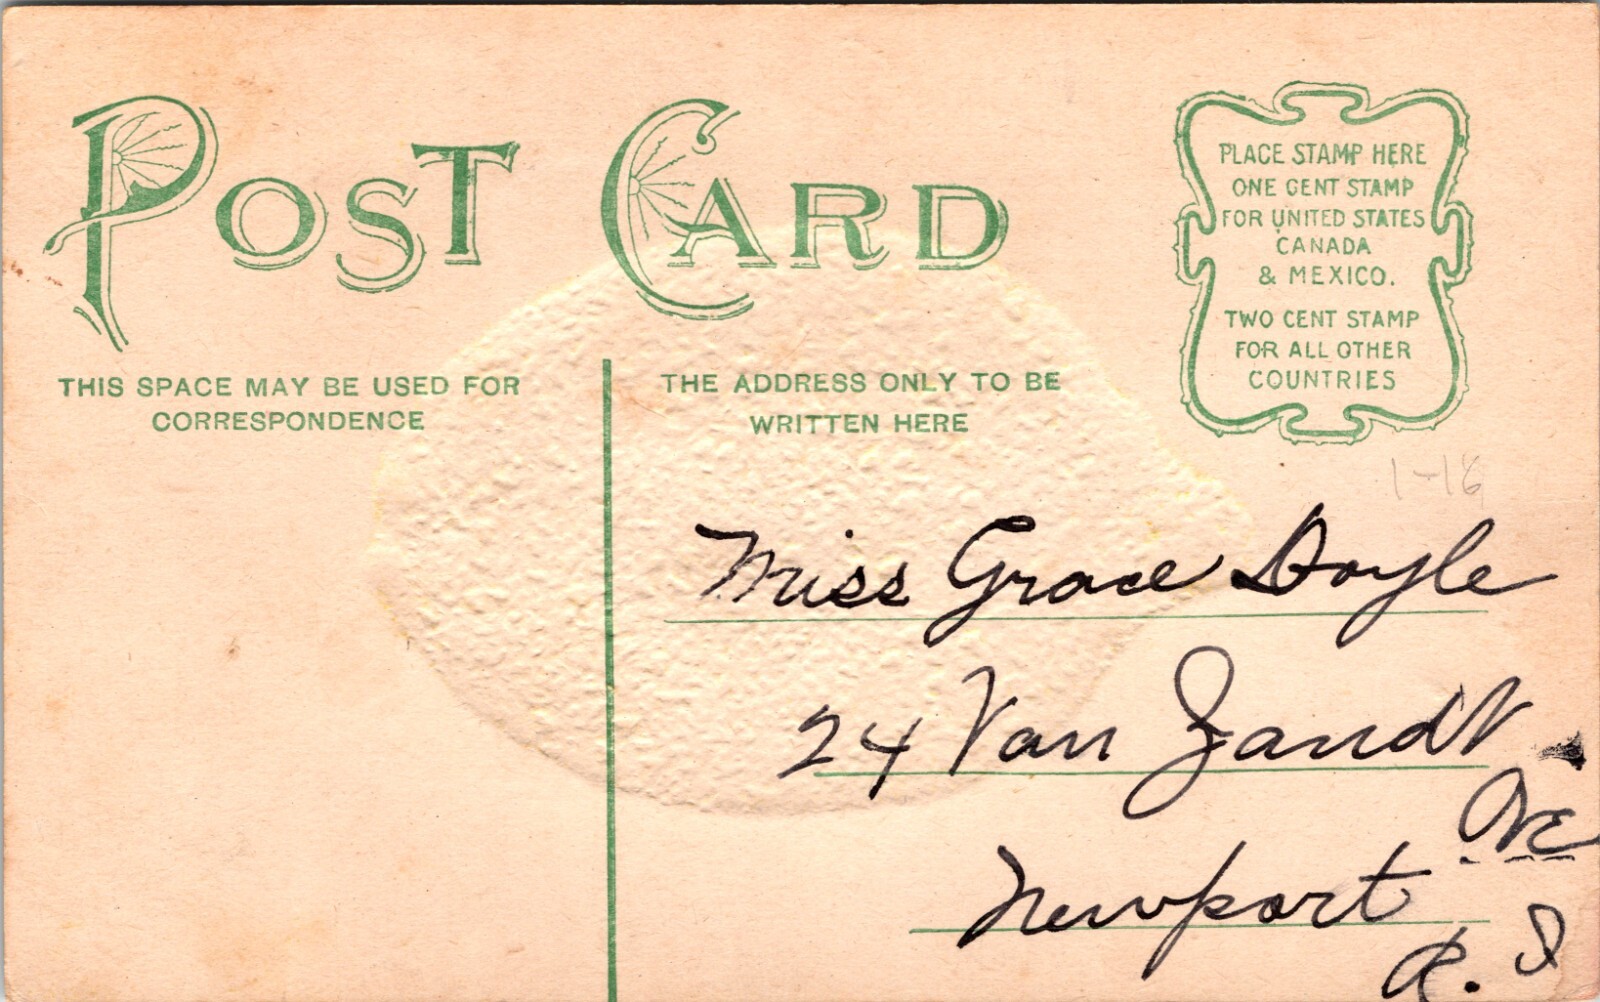 POST CARD
PLACE STAMP HERE
ONE CENT STAMP
FOR UNITED STATES
CANADA
& MEXICO.
TWO CENT STAMP
FOR ALL OTHER
COUNTRIES
THIS SPACE MAY BE USED FOR
CORRESPONDENCE
THE ADDRESS ONLY TO BE
WRITTEN HERE
1-18
Miss Grace Doyle
24 Van Zandt
Ave
Newport
R. I